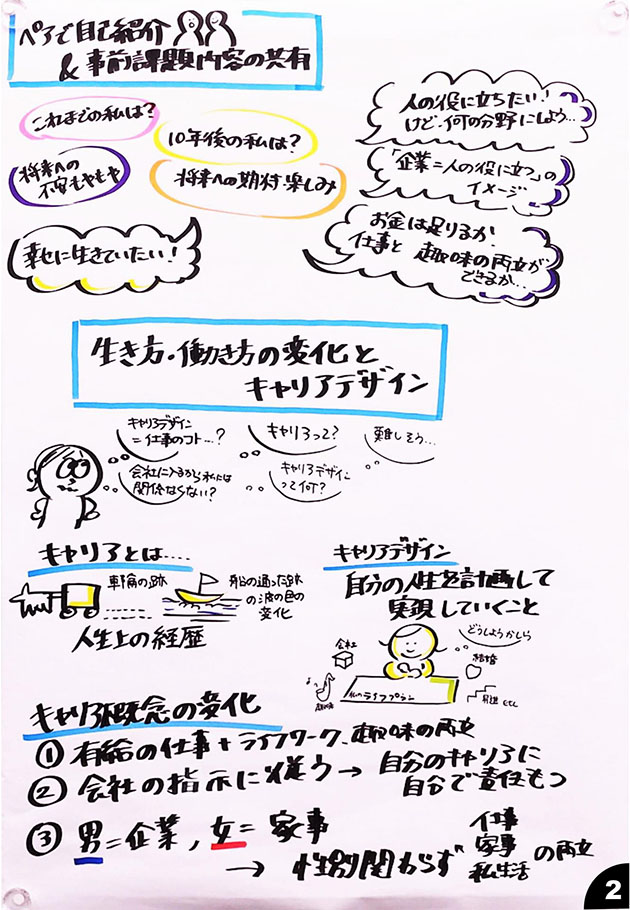 ペアで自己紹介
& 事前課題内容の共有
これまでの私は?
10年後の私は?
将来への
不安もやもや
将来への期待・楽しみ
幸せに生きていたい!
人の役に立ちたい!
けど、何の分野にしよう…
「企業=人の役に立つ」の
イメージ
お金は足りるか!
仕事と 趣味の両立が
できるか…
生き方・働き方の変化と
キャリアデザイン
キャリアデザイン
=仕事のコト…?
キャリアって?
難しそう…
会社に入るから私には
関係なくない?
キャリアデザイン
って何?
キャリアとは……
車輪の跡
船の通った跡
の波の色の
変化
人生上の経歴
キャリアデザイン
自分の人生を計画して
実現していくこと
どうしようかしら
会社
結婚
私のライフプラン
etc
キャリア概念の変化
① 有給の仕事+ライフワーク、趣味の両立
② 会社の指示に従う → 自分のキャリアに
自分で責任もつ
③ 男=企業, 女= 家事
→ 性別関わらず
仕事
家事
私生活
の両立
2